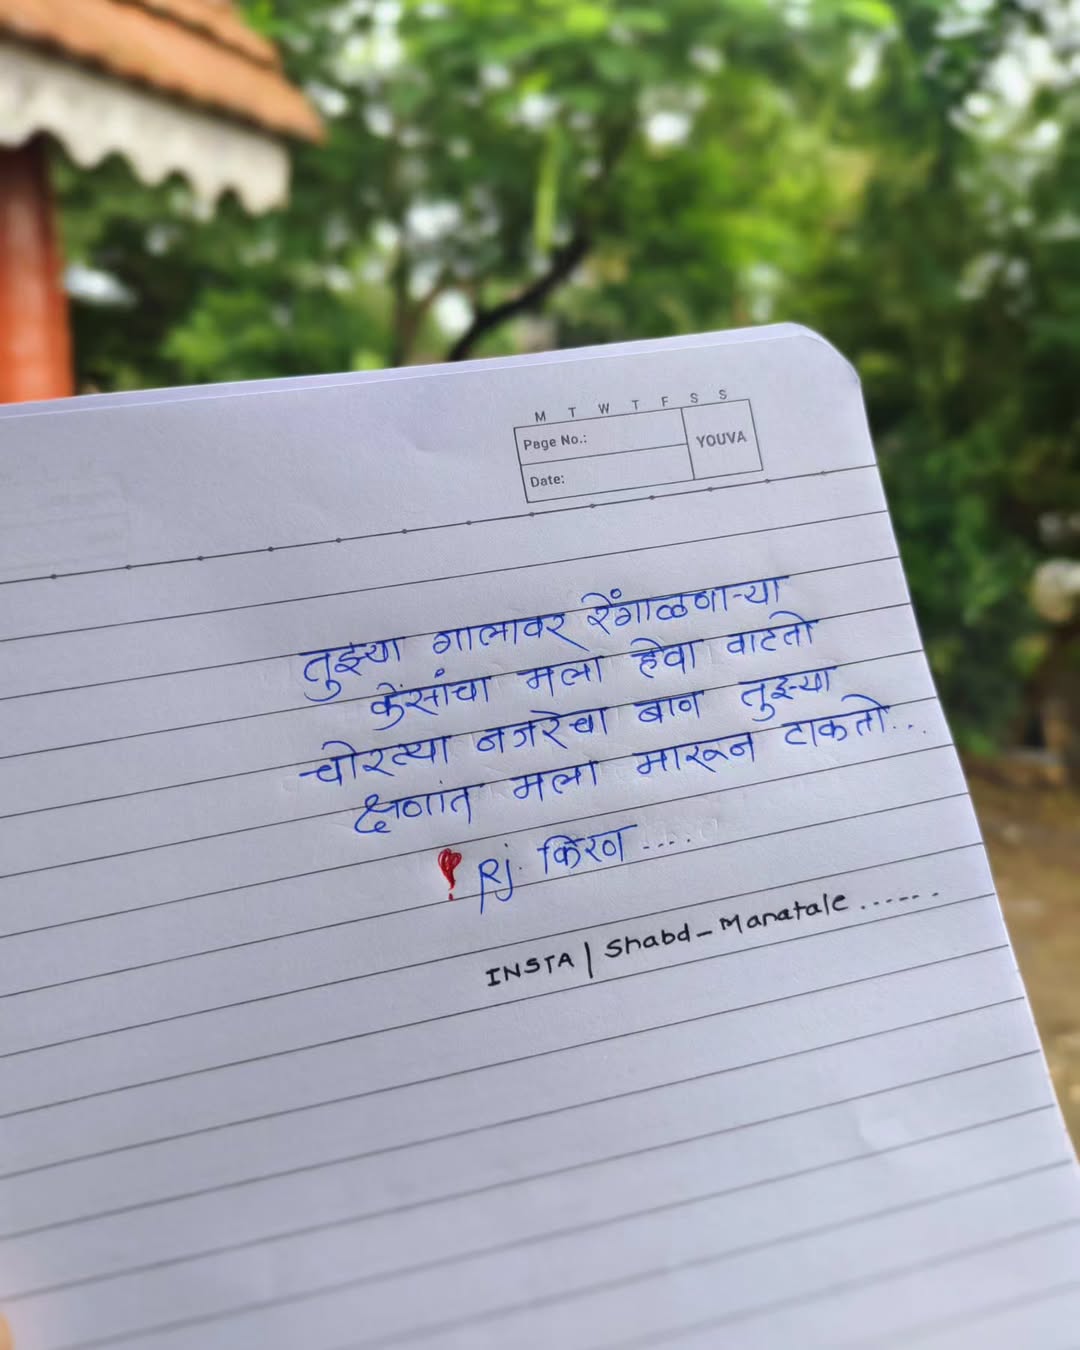 M T W T F S S
Page No.:
YOUVA
Date:
तुझ्या गालावर रेंगाळणाऱ्या
केसांचा मला हेवा वाटतो
चोरट्या नजरेचा बाण तुझ्या
क्षणांत मला मारून टाकतो..
Rj. किरण ....
INSTA | Shabd-Manatale ......